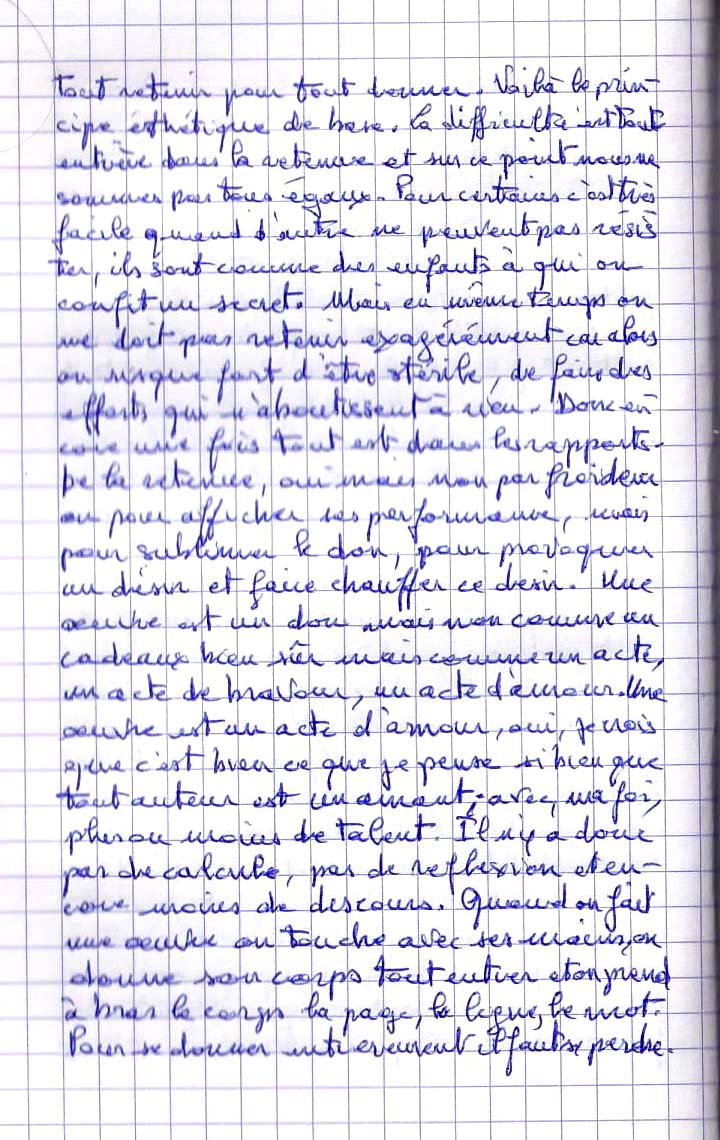 tout retenir pour tout donner. Voilà le prin-
cipe esthétique de base. La difficulté est tout
entière dans la retenue et sur ce point nous ne
sommes pas tous égaux. Pour certains c'est très
facile quand d'autre ne peuvent pas résis
ter, ils sont comme des enfants à qui on
confit un secret. Mais en même temps on
ne doit pas retenir exagérément car alors
on risque fort d'être stérile, de faire des
efforts qui n'aboutissent à rien. Donc en
core une fois tout est dans les rapports.
De la retenue, oui mais non par froideur
ou pour afficher ses performance, mais
pour sublimer le don, pour provoquer
un désir et faire chauffer ce desir. Une
oeuvre est un don mais non comme un
cadeaux bien sûr mais comme un acte,
un acte de bravour, un acte d'amour. Une
oeuvre est un acte d'amour, oui, je crois
que c'est bien ce que je pense si bien que
tout auteur est un amant, avec, ma foi,
plus ou moins de talent. Il n'y a donc
pas de calcule, pas de reflexion et en-
core moins de discours. Quand on fait
une oeuvre on touche avec ses mains, on
donne son corps tout entier et on prend
à bras le corps la page, la ligne, le mot.
Pour se donner entièrement il faut se perdre.